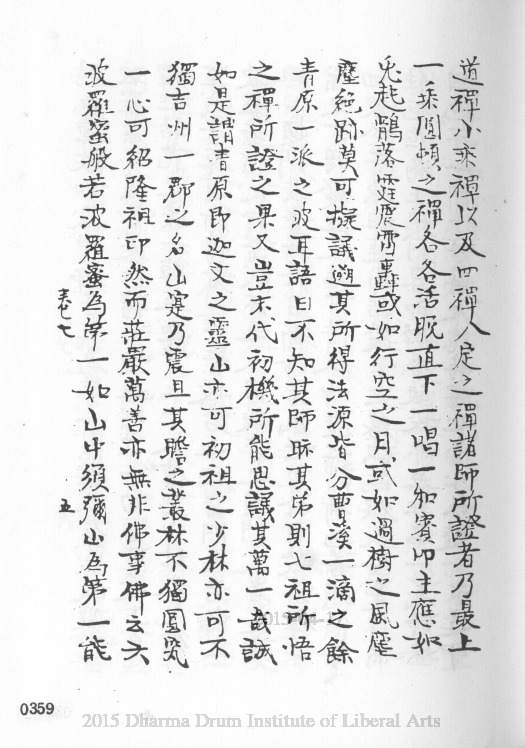 道禪小乘禪以及四禪八定之禪諸師所證者乃最上
一乘圓頓之禪各各活脫直下一唱一和賓叩主應如
兎起鶻落霆震雷轟或如行空之日或如過樹之風塵
塵絕跡莫可擬議遡其所得法源皆分曹溪一滴之餘
青原一派之波耳語曰不知其師眎其弟則七祖所悟
之禪所證之果又豈末代初機所能思議其萬一哉誠
如是謂青原即迦文之靈山亦可初祖之少林亦可不
獨吉州一郡之名山寔乃震旦具瞻之叢林不獨圓究
一心可紹隆祖印然而莊嚴萬善亦無非佛事佛云六
波羅蜜般若波羅蜜為第一如山中須彌山為第一能
五
0359
2015 Dharma Drum Institute of Liberal Arts